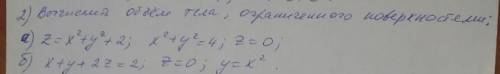 2) Вычислить объём тела, ограниченного поверхностями;
а) z = x² + y² + 2; x² + y² = 4; z = 0;
б) x + y + 2z = 2; z = 0; y = x².